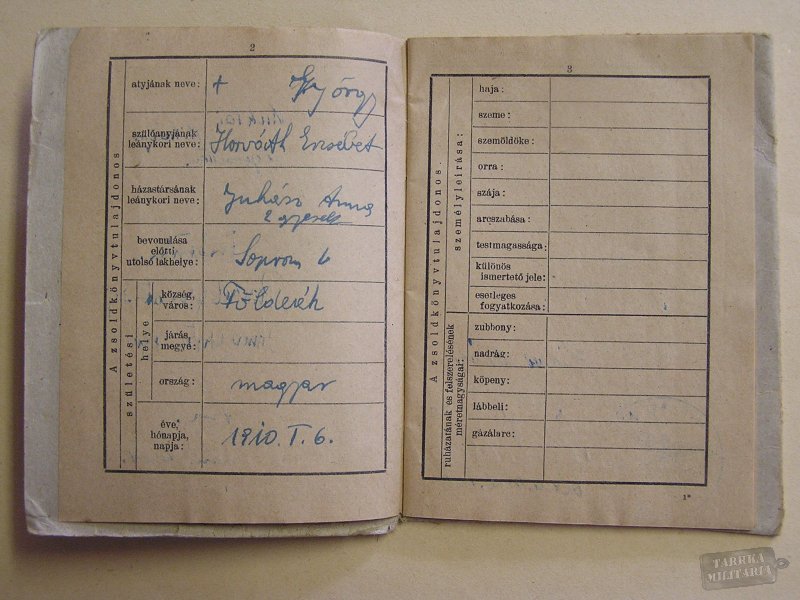 2
A zsoldkönyvtulajdonos
atyjának neve: + György
szülőanyjának
leánykori neve: Horváth Erzsébet
házastársának
leánykori neve: Juhász Anna
2 gyerek
bevonulása
előtti
utolsó lakhelye: Sopron
születési
helye
község,
város: Földeák
járás,
megye:
ország: magyar
éve,
hónapja,
napja: 1910. I. 6.
3
A zsoldkönyvtulajdonos
személyleírása:
haja:
szeme:
szemöldöke:
orra:
szája:
arcszabása:
testmagassága:
különös
ismertető jele:
esetleges
fogyatkozása:
ruházatának és felszerelésének
méretnagyságai:
zubbony:
nadrág:
köpeny:
lábbeli:
gázálarc:
1*
TARRKA
MILITARIA